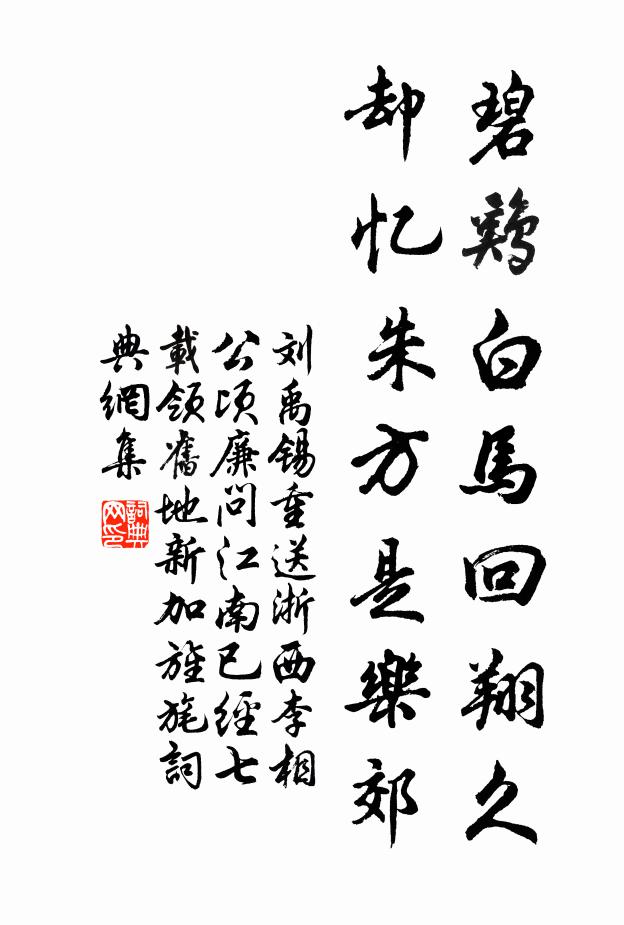 碧鷄白馬回翔久
却忆朱方是樂郊
刘禹锡重送浙西李相
公頃廉问江南已經七
載领舊地新加旌旄詞
典網集
詞典网印